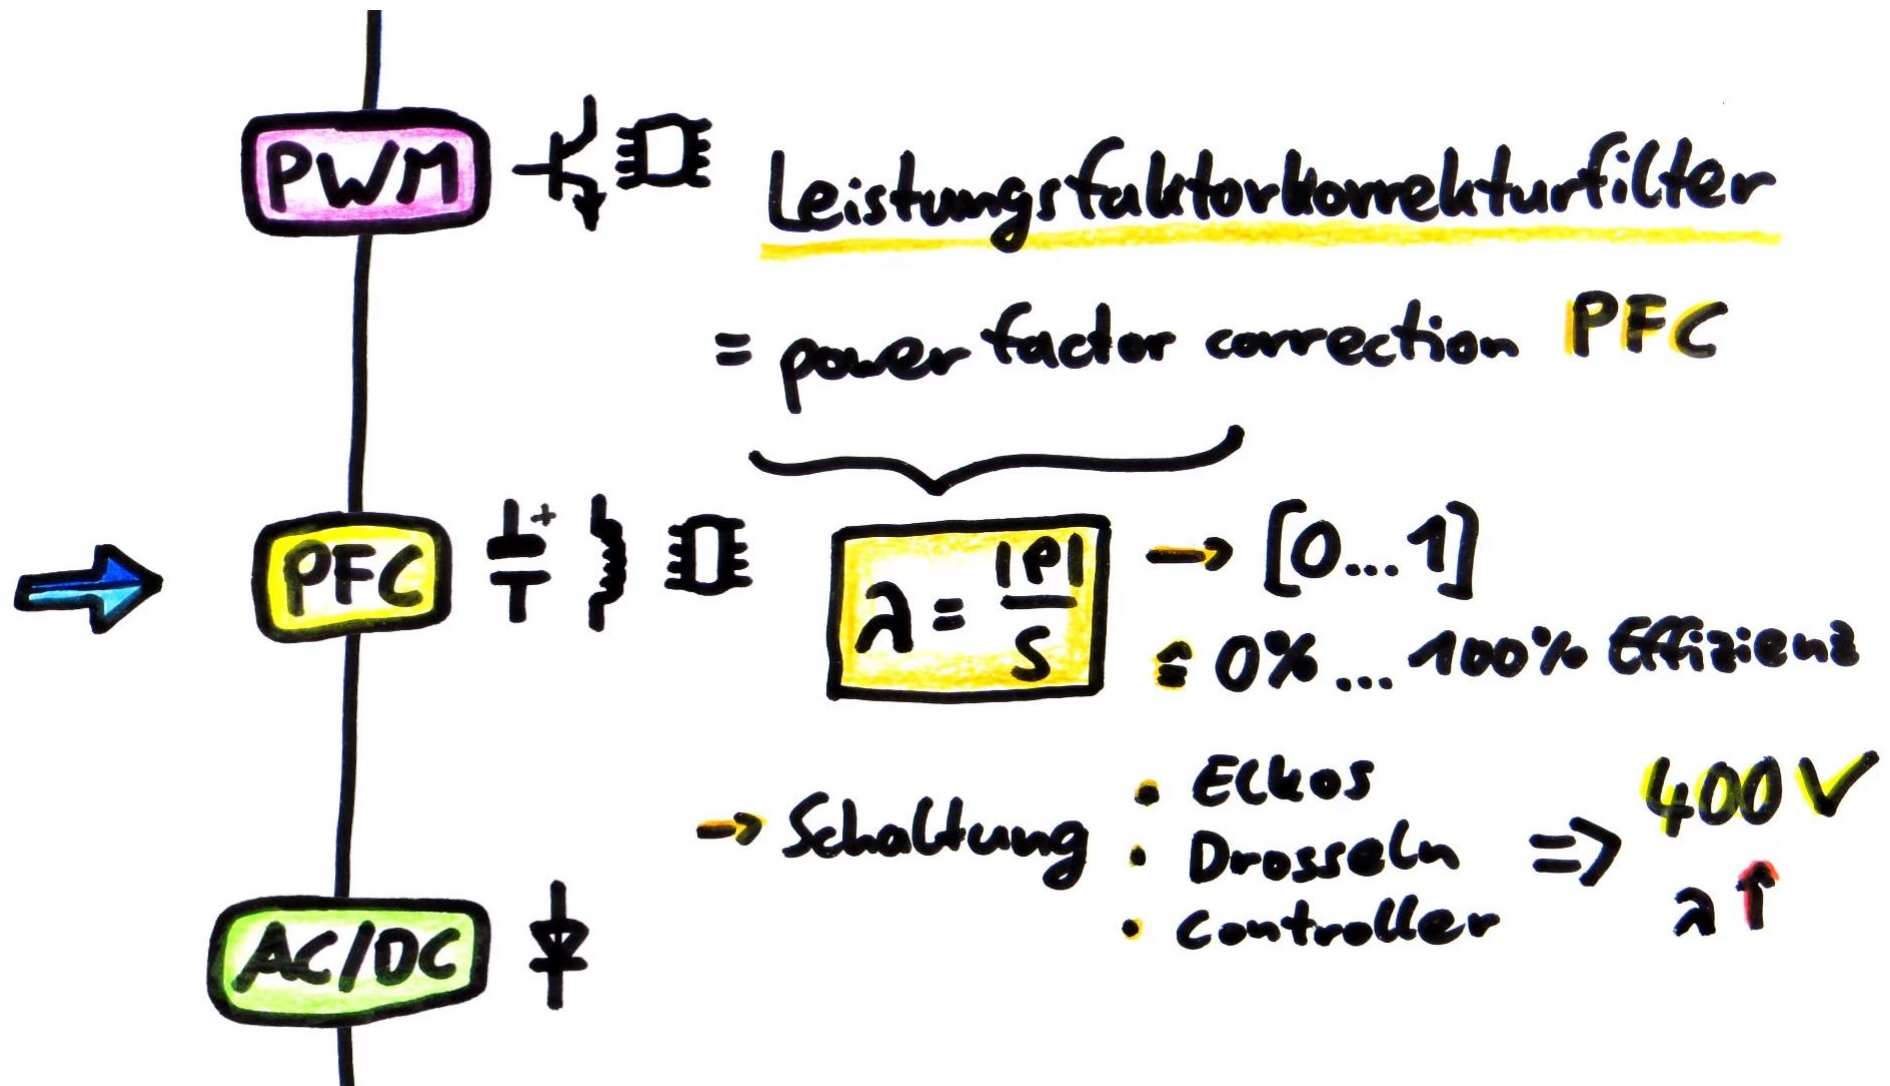 PWM
Leistungsfaktorkorrekturfilter
= power factor correction PFC
PFC
+
λ = |P| / S
→ [0...1]
≙ 0% ... 100% Effizienz
→ Schaltung
• Elkos
• Drosseln
• Controller
=> 400V
λ↑
AC/DC